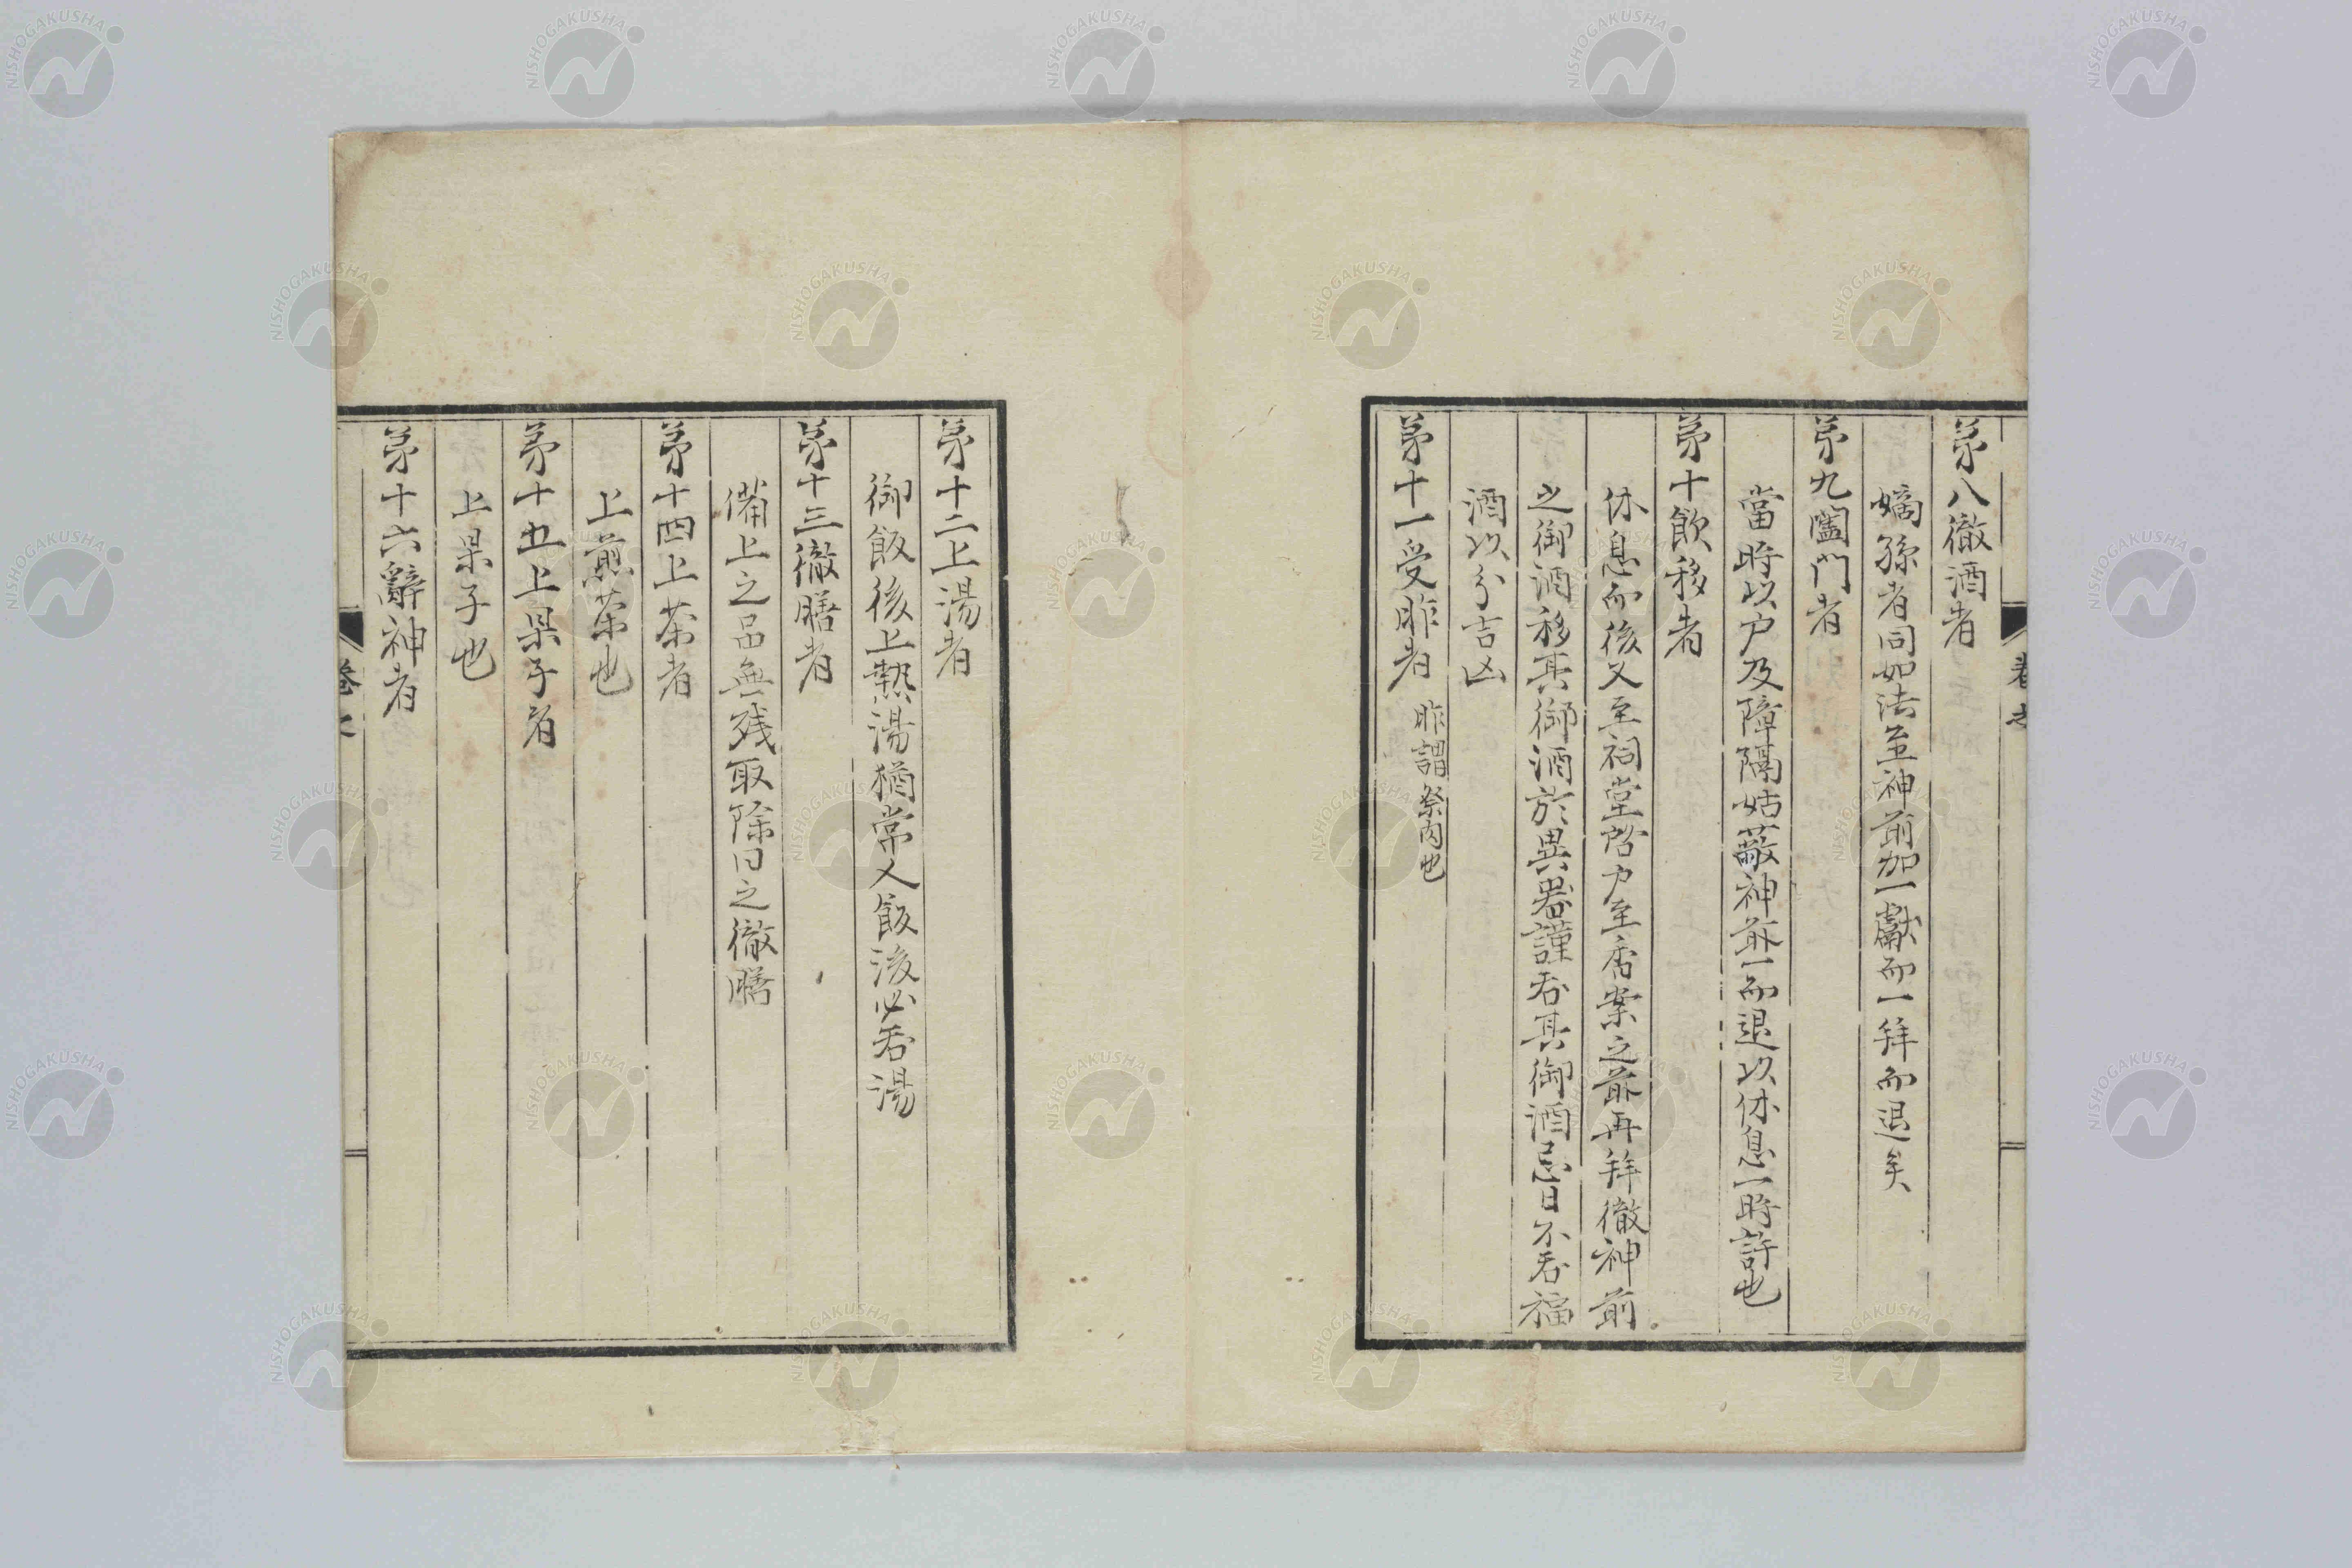 第八徹酒者
嫡孫者同如法至神前加一獻而一拜而退矣
第九闔門者
當時以戶及障隔姑蔽神前而退以休息一時許也
第十飲移者
休息而後又至祠堂啓戶至香案之前再拜徹神前
之御酒移其御酒於異器謹吞其御酒忌日不吞福
酒以分吉凶
第十一受胙者 胙謂祭肉也
第十二上湯者
御飯後上熱湯猶常人飯後必吞湯
第十三徹膳者
備上之品無残取除曰之徹膳
第十四上茶者
上煎茶也
第十五上果子者
上果子也
第十六辭神者
卷之
NISHOGAKUSHA